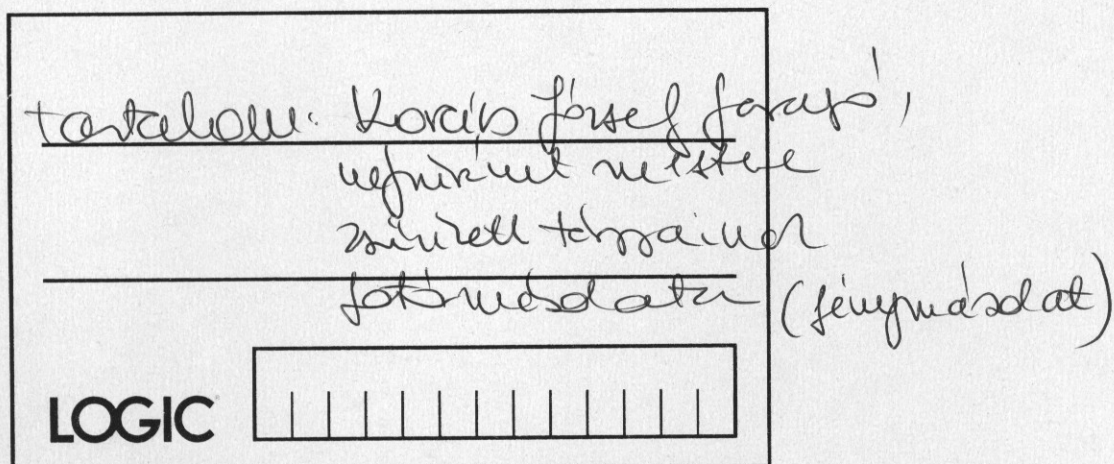 tartalom: Kovács József faragó,
népművészet mestere
zsűrizett tárgyainak
fotómásolata (fénymásolat)
LOGIC